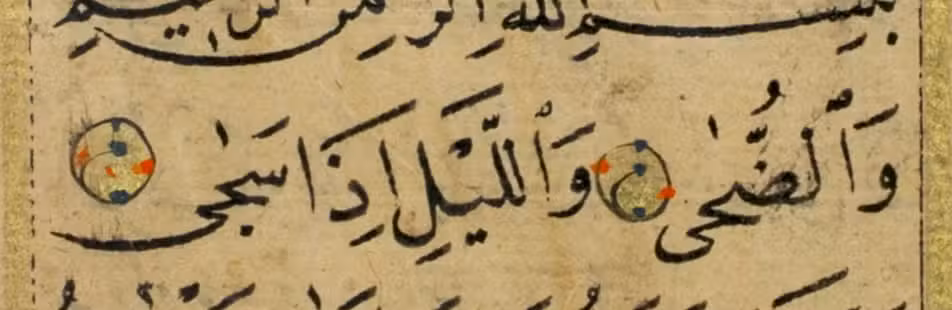 بِسْمِ اللَّهِ الرَّحْمَٰنِ الرَّحِيمِ
وَٱلضُّحَىٰ وَٱللَّيْلِ إِذَا سَجَىٰ